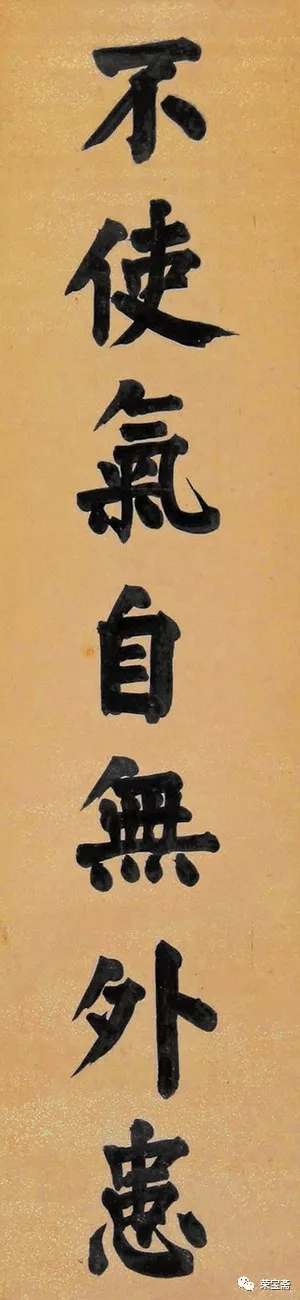 不使氣自無外患
荣宝斋